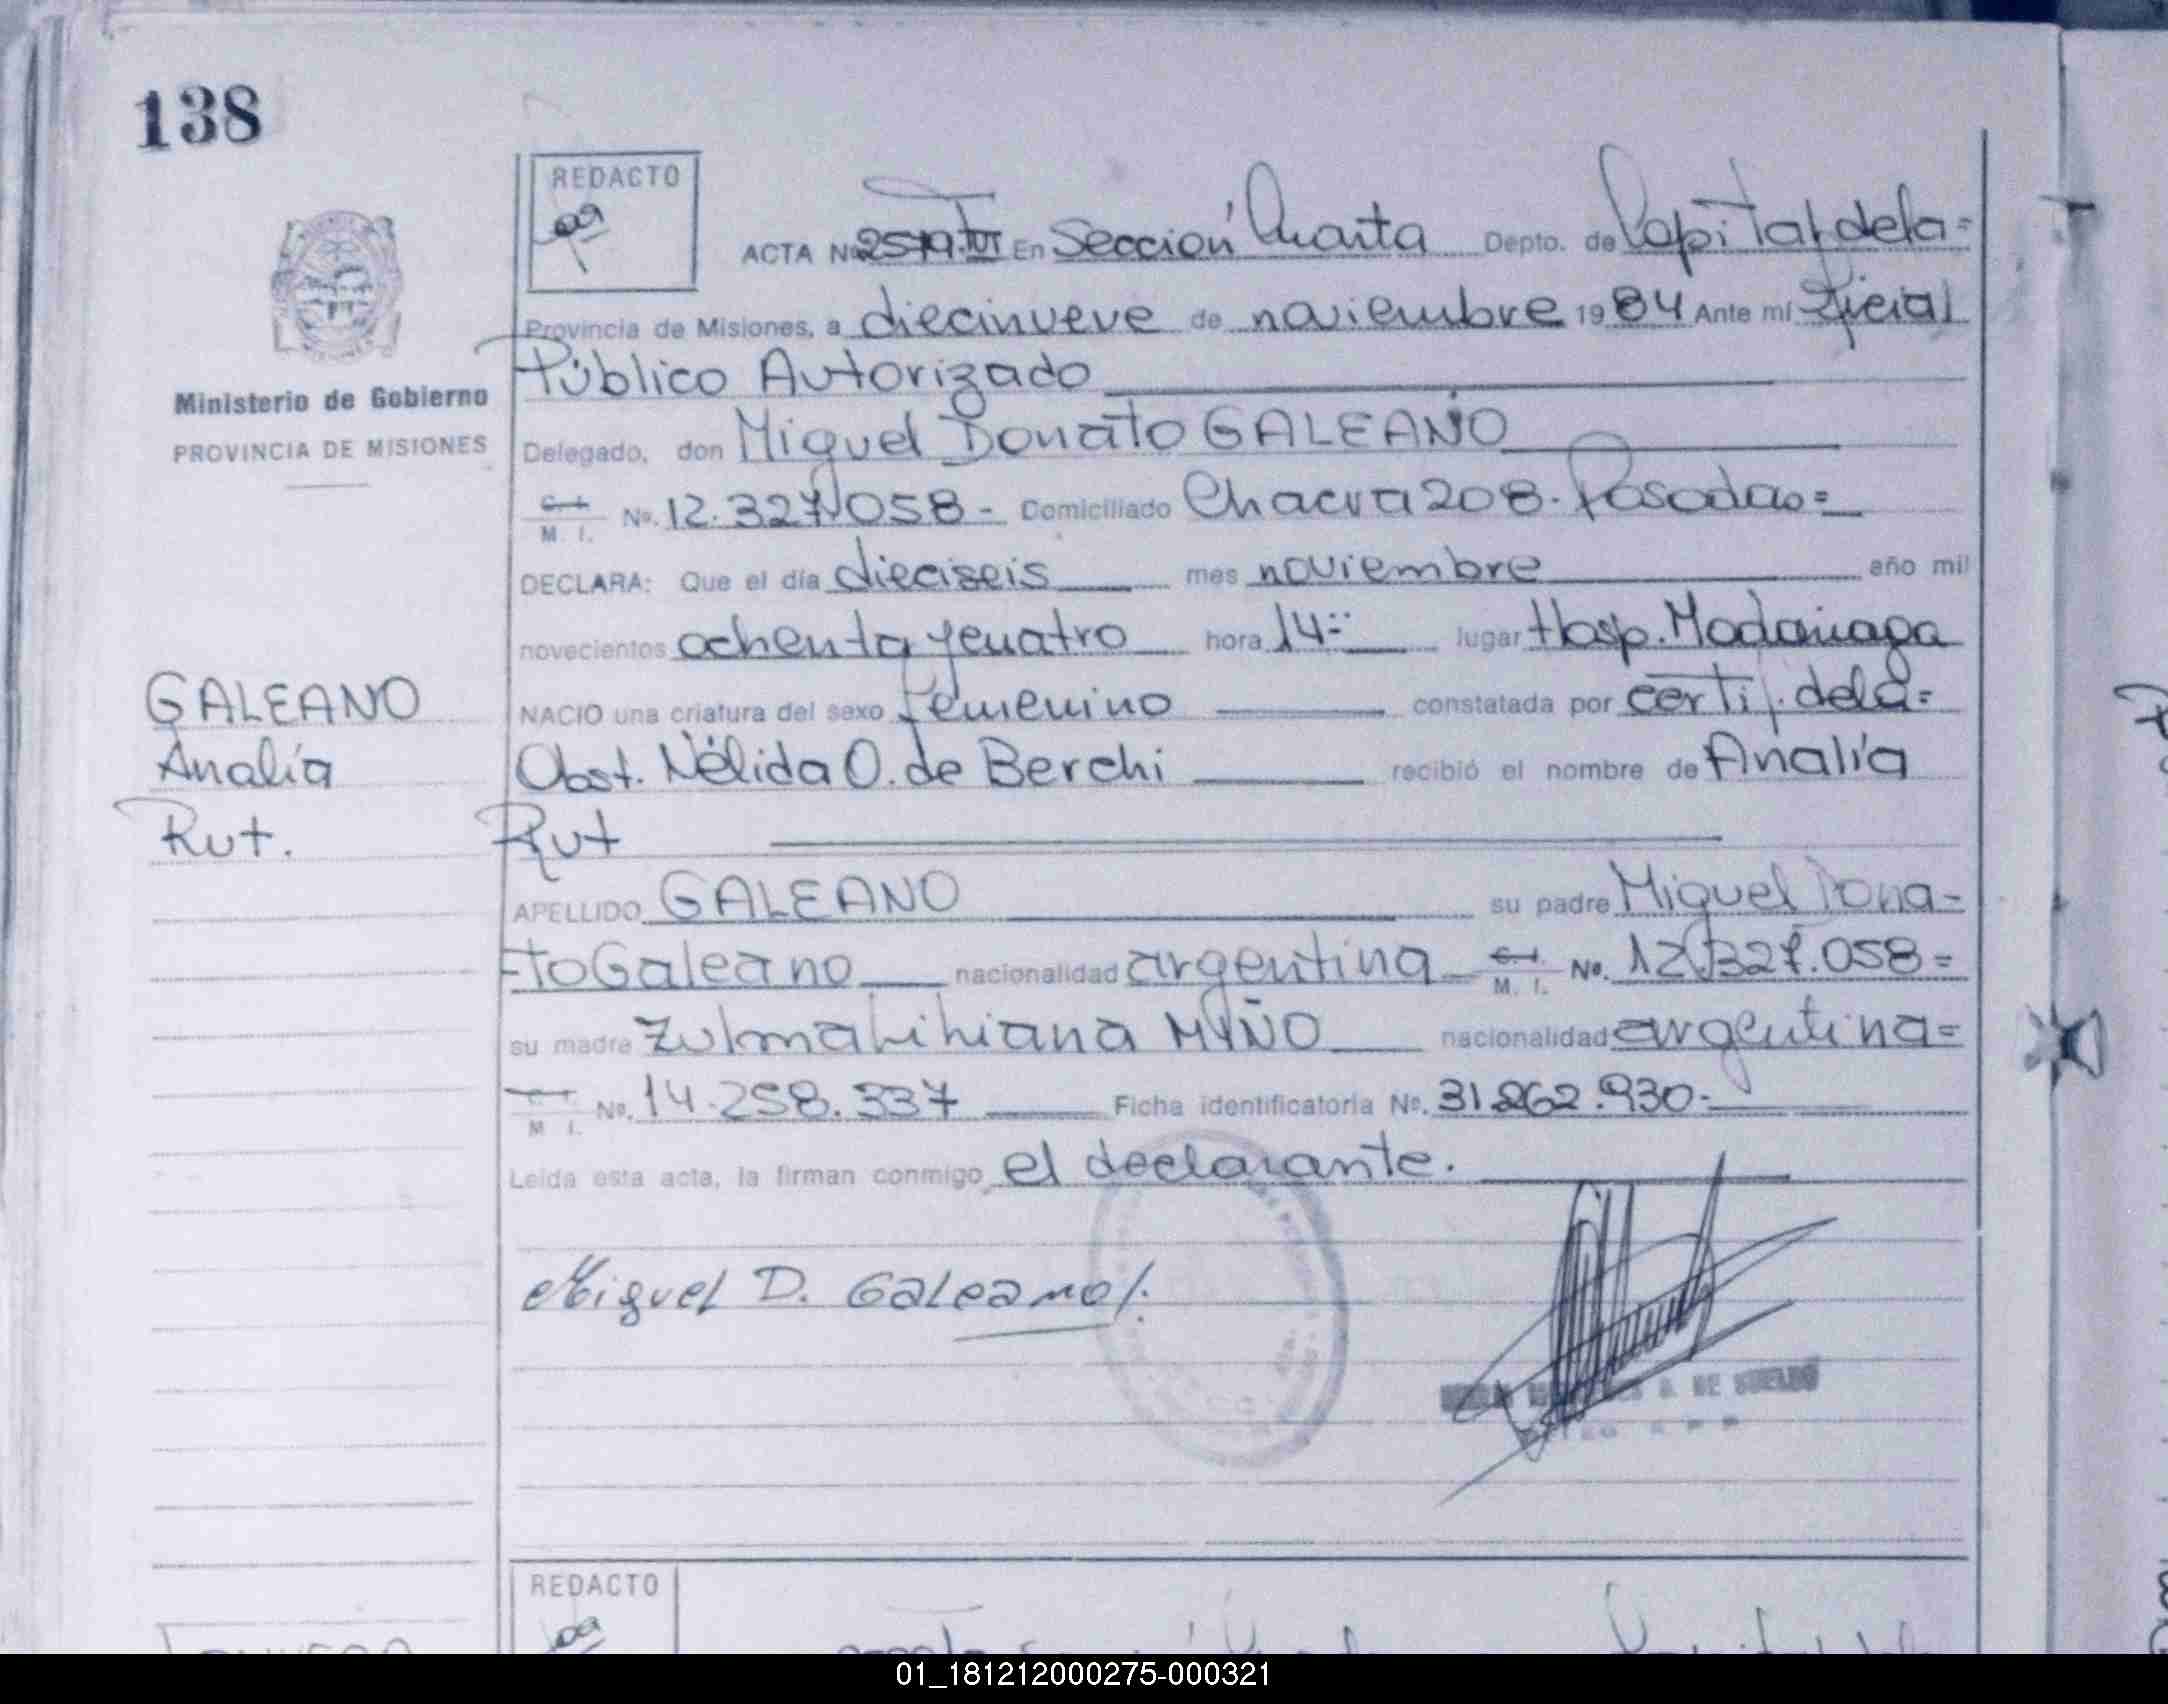 138
REDACTO
ACTA Nº 2579.TVI En Sección Cuarta Depto. de Capital de la=
Provincia de Misiones, a diecinueve de noviembre 1984 Ante mí Oficial
Público Autorizado
Ministerio de Gobierno
PROVINCIA DE MISIONES
Delegado, don Miguel Donato GALEANO
C.I. M. I. Nº. 12.327.058- Domiciliado Chacra 208. Posadas=
DECLARA: Que el día dieciseis mes noviembre año mil
novecientos ochenta y cuatro hora 14:- lugar Hosp. Madariaga
GALEANO
NACIO una criatura del sexo femenino constatada por certif. de la=
Analía
Obst. Nélida O. de Berchi recibió el nombre de Analía
Rut.
Rut
APELLIDO GALEANO su padre Miguel Dona-
to Galeano nacionalidad argentina C.I. M. I. Nº. 12.327.058=
su madre Zulma Liliana MIÑO nacionalidad argentina=
M I. Nº. 14.258.337 Ficha identificatoria Nº. 31.262.930-
Leida esta acta, la firman conmigo, el declarante.
Miguel D. Galeano
DE SUELDO
REDACTO
01_181212000275-000321